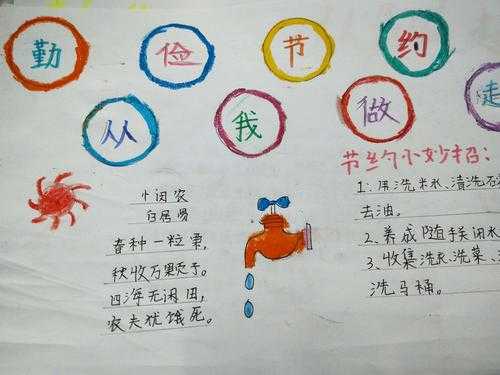 勤 俭 节 约
从 我 做
悯农
白居易
春种一粒粟,
秋收万颗子。
四海无闲田,
农夫犹饿死。
节约小妙招:
1:用洗米水、清洗
去油。
2、养成随手闭水
3、收集洗衣、洗菜、
洗马桶。